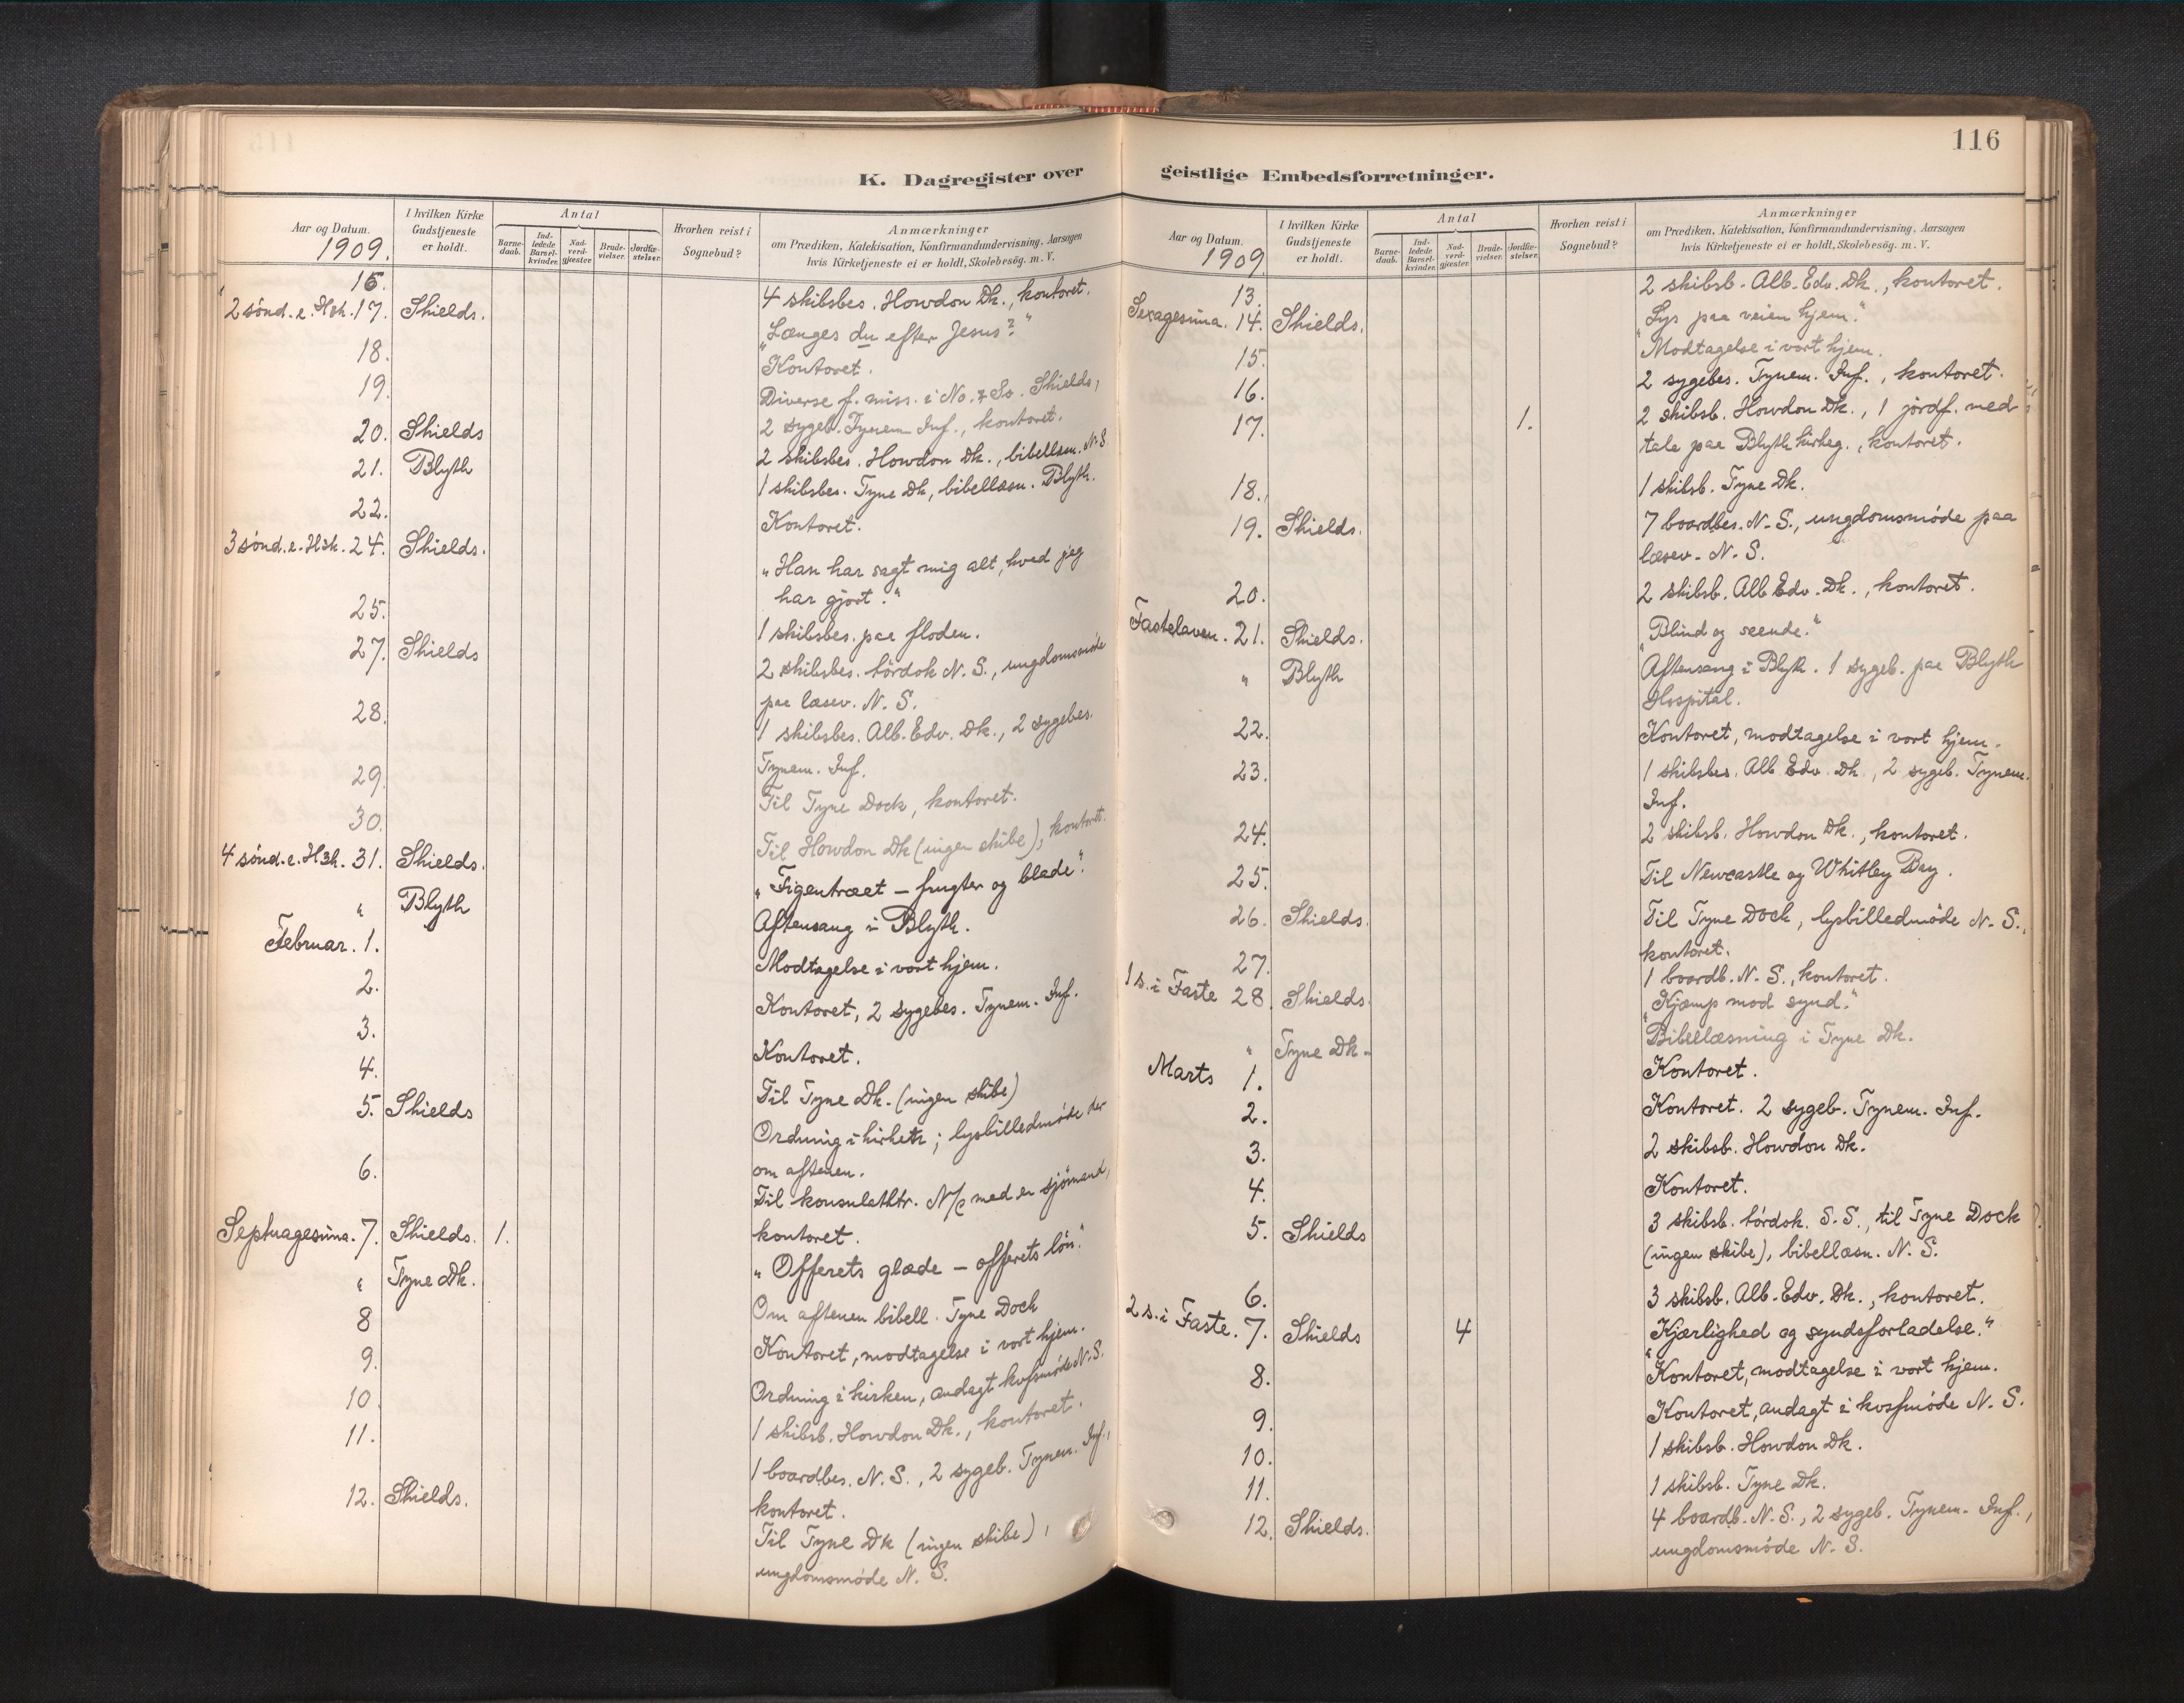 116
K. Dagregister over geistlige Embedsforretninger.
Aar og Datum. 1909.
I hvilken Kirke Gudstjeneste er holdt.
Antal
Barnedaab.
Indledede Barselkvinder.
Nadverdgjæster.
Brudevielser.
Jordfæstelser.
Hvorhen reist i Sognebud?
Anmærkninger
om Prædiken, Katekisation, Konfirmandundervisning, Aarsagen
hvis Kirketjeneste ei er holdt, Skolebesög. m. V.
16. 4 skibsbes. Howdon Dk., kontoret.
2 sönd. e. H3k. 17. Shields. „Længes du efter Jesus?"
18. Kontoret.
19. Diverse f. miss. i No. & So. Shields,
2 sygeb. Tynem. Inf., kontoret.
20. Shields 2 skibsbes. Howdon Dk., bibellæsn. N. S.
21. Blyth 1 skibsbes. Tyne Dk, bibellæsn. Blyth.
22. Kontoret.
3 sönd. e. H3k. 24. Shields. „Han har sagt mig alt, hvad jeg
har gjort."
25. 1 skibsbes. paa floden.
27. Shields 2 skibsbes. tördok N. S., ungdomsmöde
paa læsev. N. S.
28. 1 skibsbes. Alb. Edv. Dk., 2 sygebes.
Tynem. Inf.
29. Til Tyne Dock, kontoret.
30. Til Howdon Dk (ingen skibe), kontoret.
4 sönd. e. H3k. 31. Shields. „Figentræet – frugter og blade".
" Blyth Aftensang i Blyth.
Februar. 1. Modtagelse i vort hjem.
2. Kontoret, 2 sygebes. Tynem. Inf.
3. Kontoret.
4. Til Tyne Dk. (ingen skibe)
5. Shields Ordning i kirken; lysbilledmöde der
om aftenen.
6. Til konsulatktr. N/C med en sjömand,
kontoret.
Septuagesima. 7. Shields. 1. „Offerets glæde – offerets lön".
" Tyne Dk. Om aftenen bibell. Tyne Dock
8 Kontoret, modtagelse i vort hjem.
9. Ordning i kirken, andagt kvfsmöde N. S.
10. 1 skibsb. Howdon Dk., kontoret.
11. 1 boardbes. N. S., 2 sygeb. Tynem. Inf.,
kontoret.
12. Shields. Til Tyne Dk (ingen skibe),
ungdomsmöde N. S.
Aar og Datum. 1909.
I hvilken Kirke Gudstjeneste er holdt.
Antal
Barnedaab.
Indledede Barselkvinder.
Nadverdgjæster.
Brudevielser.
Jordfæstelser.
Hvorhen reist i Sognebud?
Anmærkninger
om Prædiken, Katekisation, Konfirmandundervisning, Aarsagen
hvis Kirketjeneste ei er holdt, Skolebesög. m. V.
13. 2 skibsb. Alb. Edv. Dk., kontoret.
Sexagesima. 14. Shields. „Lys paa veien hjem."
15. Modtagelse i vort hjem.
16. 2 sygebes. Tynem. Inf., kontoret.
17. 1. 2 skibsb. Howdon Dk., 1 jordf. med
tale paa Blyth kirkeg., kontoret.
18. 1 skibsb. Tyne Dk.
19. Shields. 7 boardbes. N. S., ungdomsmöde paa
læsev. N. S.
20. 2 skibsb. Alb Edv. Dk., kontoret.
Fastelaven. 21. Shields. „Blind og seende."
" Blyth Aftensang i Blyth. 1 sygeb. paa Blyth
Hospital.
22. Kontoret, modtagelse i vort hjem.
23. 1 skibsbes. Alb Edv. Dk., 2 sygeb. Tynem.
Inf.
24. 2 skibsb. Howdon Dk., kontoret.
25. Til Newcastle og Whitley Bay.
26. Shields. Til Tyne Dock, lysbilledmöde N. S.,
kontoret.
27. 1 boardb. N. S., kontoret.
1 s. i Faste 28 Shields. „Kjæmp mod synd."
" Tyne Dk. Bibellæsning i Tyne Dk.
Marts 1. Kontoret.
2. Kontoret. 2 sygeb. Tynem. Inf.
3. 2 skibsb. Howdon Dk.
4. Kontoret.
5. Shields 3 skibsb. tördok. S. S., til Tyne Dock
(ingen skibe), bibellæsn. N. S.
6. 3 skibsb. Alb. Edv. Dk., kontoret.
2 s. i Faste. 7. Shields 4 „Kjærlighed og syndsforladelse."
8. Kontoret, modtagelse i vort hjem.
9. Kontoret, andagt i kvsfmöde N. S.
10. 1 skibsb. Howdon Dk.
11. 1 skibsb. Tyne Dk.
12. Shields. 4 boardb. N. S., 2 sygeb. Tynem. Inf.,
ungdomsmöde N. S.